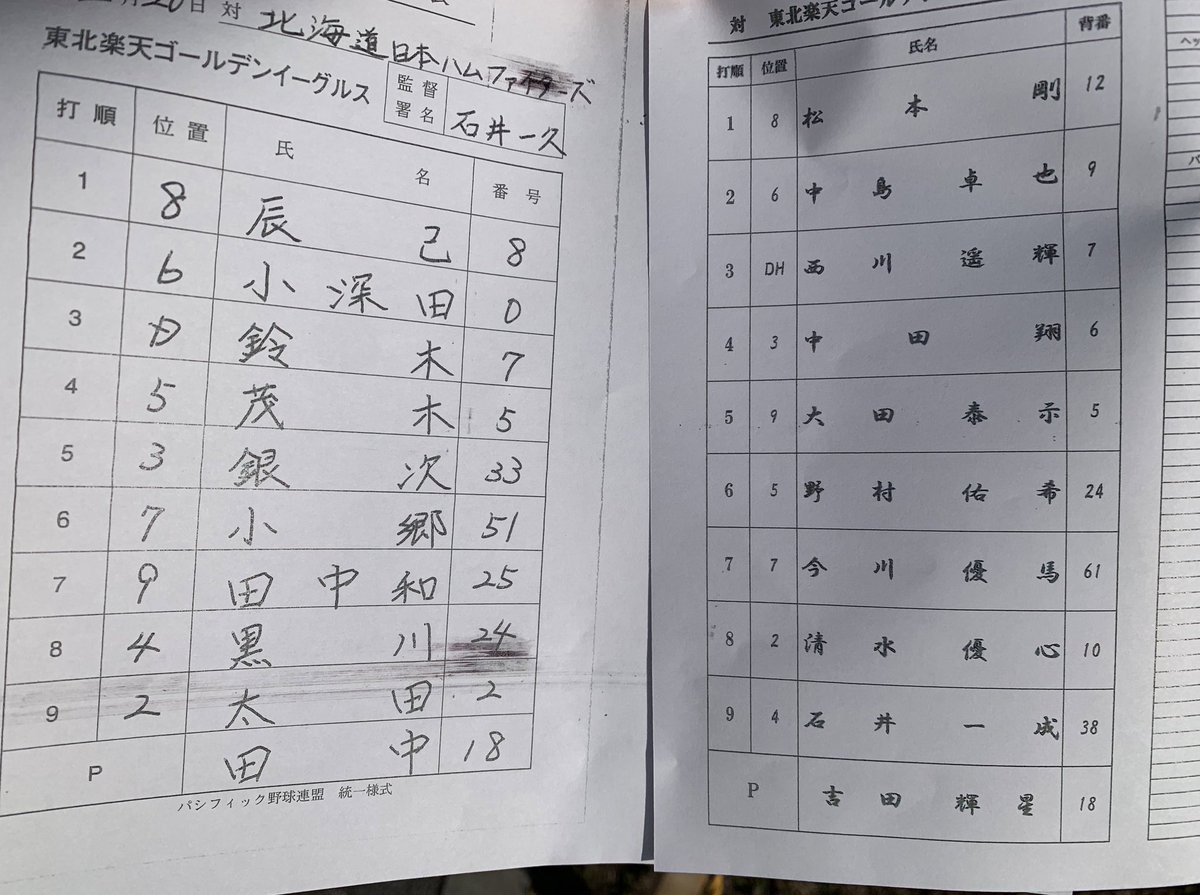 月20日 対 北海道日本ハムファイターズ
東北楽天ゴールデンイーグルス
監督署名 石井一久
打順 位置 氏名 番号
1 8 辰己 8
2 6 小深田 0
3 D 鈴木 7
4 5 茂木 5
5 3 銀次 33
6 7 小郷 51
7 9 田中和 25
8 4 黒川 24
9 2 太田 2
P 田中 18
パシフィック野球連盟 統一様式
対 東北楽天ゴールデン
打順 位置 氏名 背番
1 8 松本剛 12
2 6 中島卓也 9
3 DH 西川遥輝 7
4 3 中田翔 6
5 9 大田泰示 5
6 5 野村佑希 24
7 7 今川優馬 61
8 2 清水優心 10
9 4 石井一成 38
P 吉田輝星 18